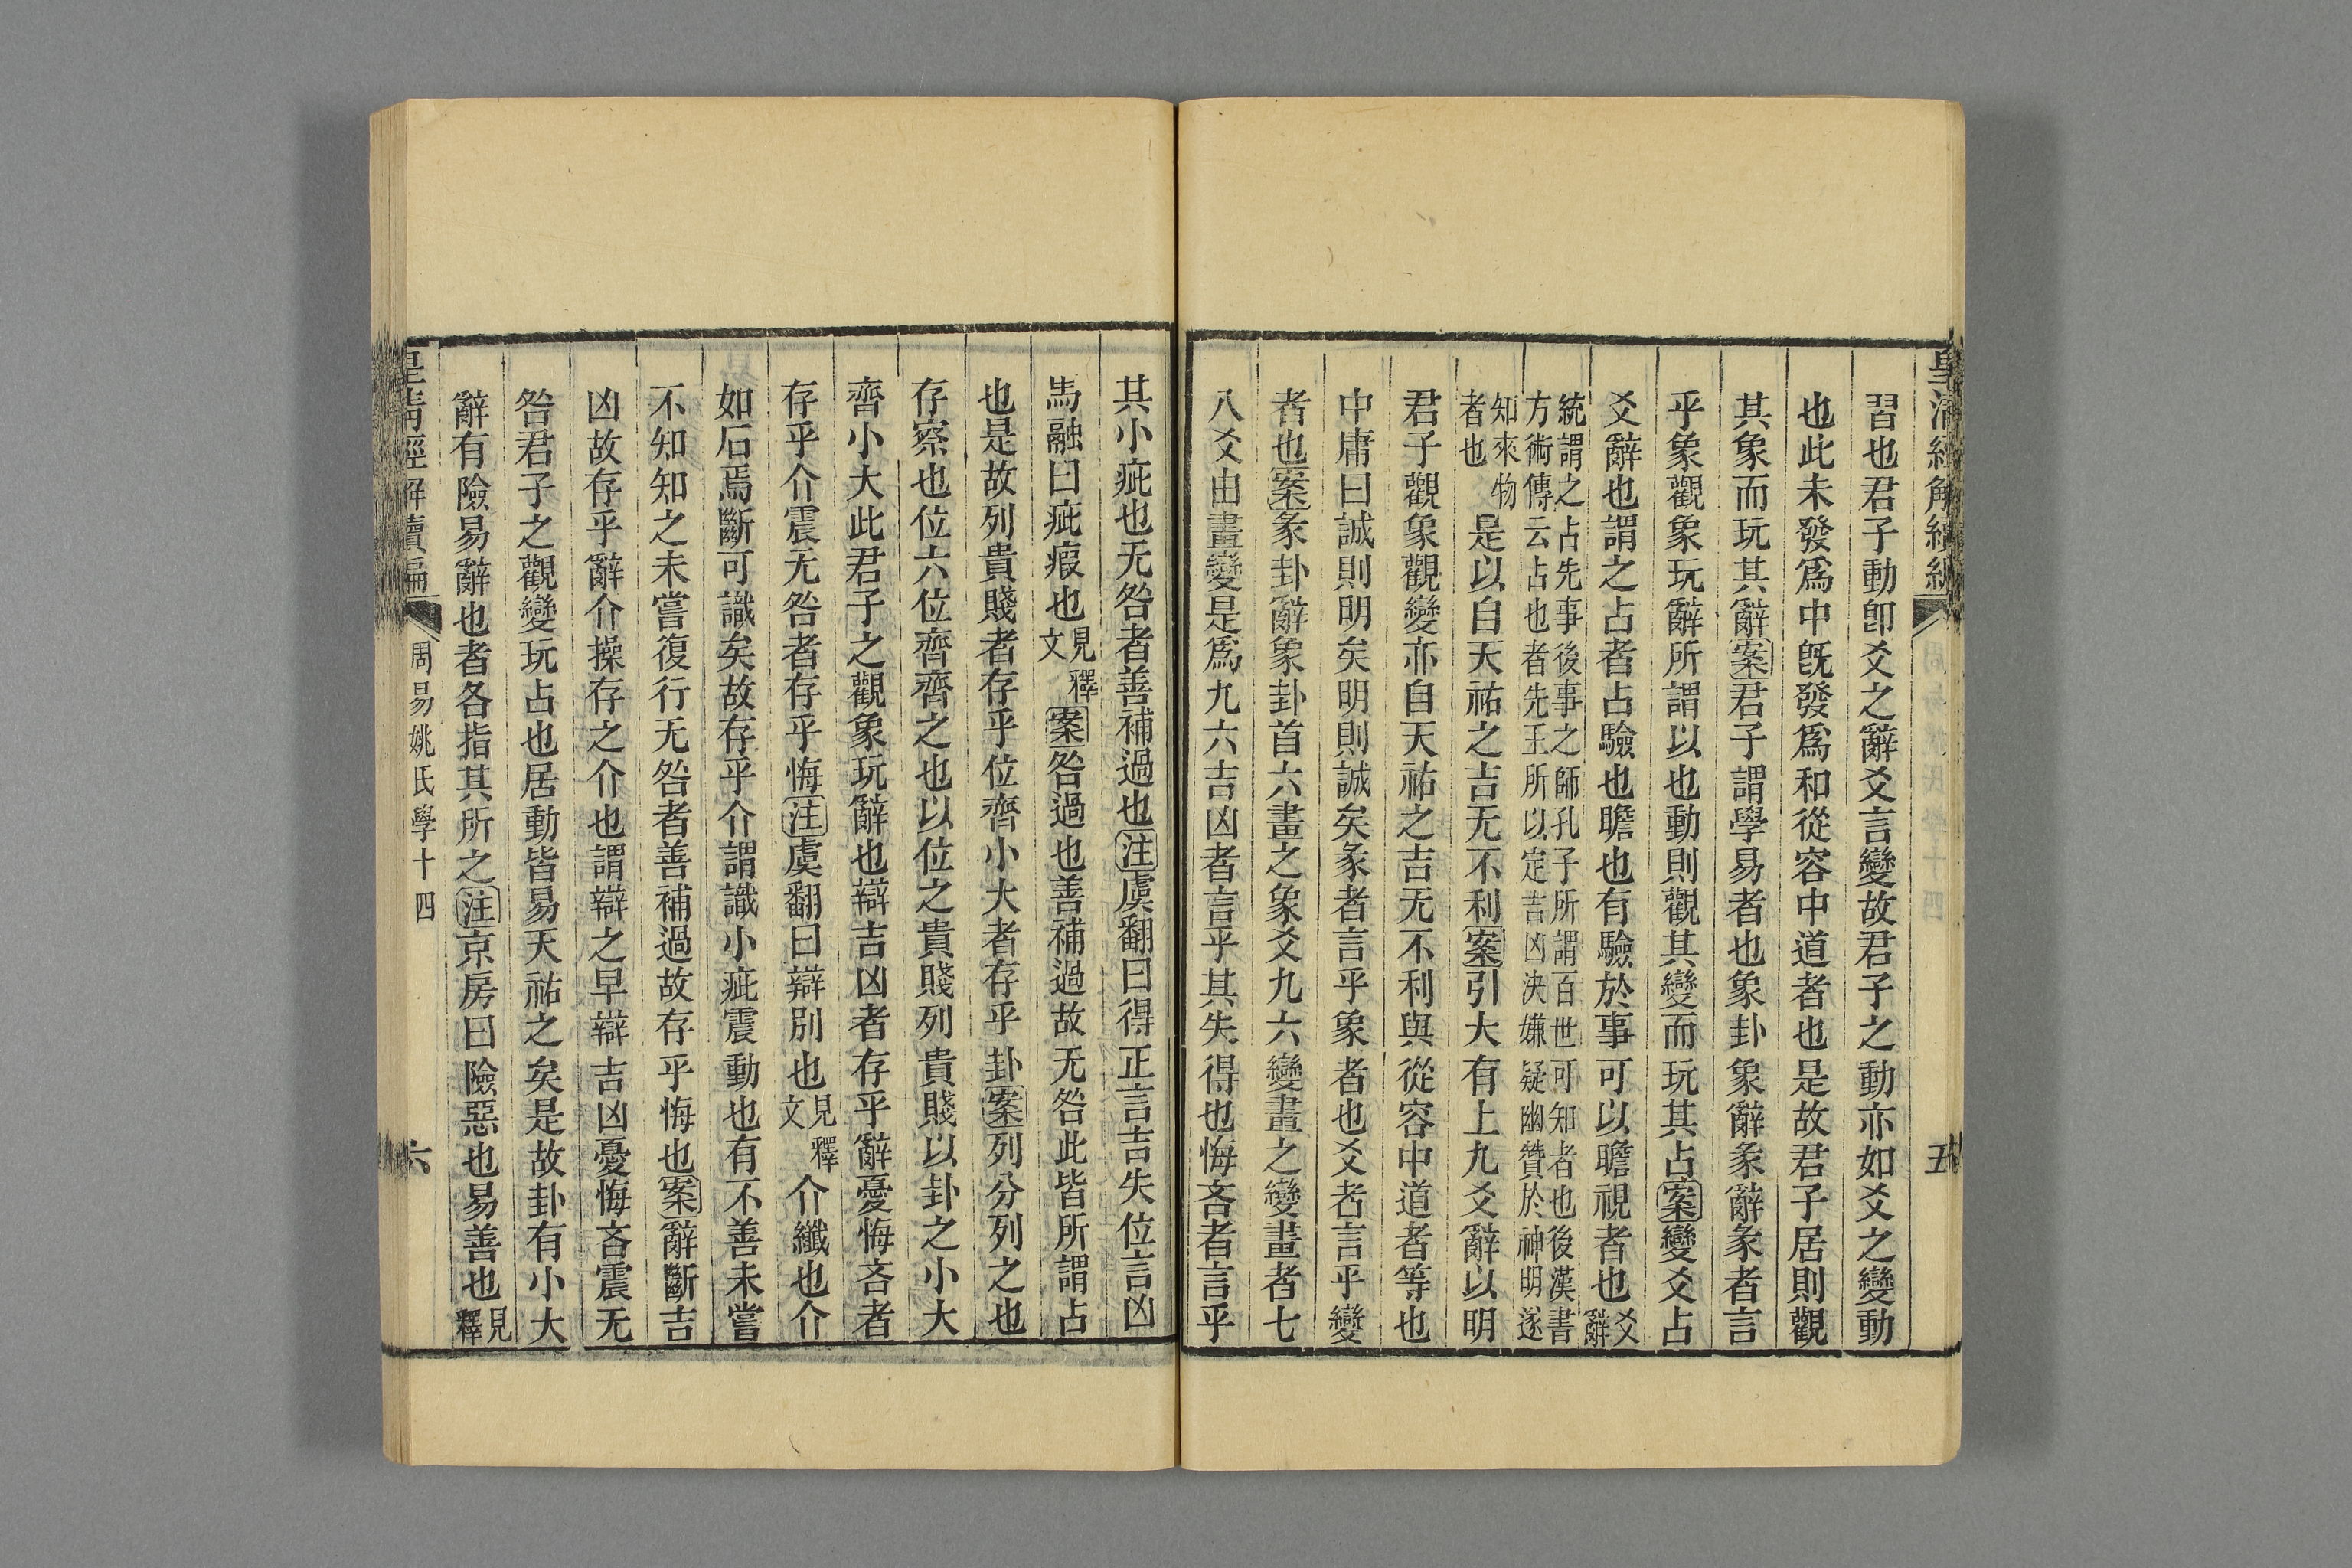 皇清經解續編
五
習也君子動卽爻之辭爻言變故君子之動亦如爻之變動
也此未發爲中旣發爲和從容中道者也是故君子居則觀
其象而玩其辭案君子謂學易者也象卦象辭彖辭彖者言
乎象觀象玩辭所謂以也動則觀其變而玩其占案變爻占
爻辭也謂之占者占驗也瞻也有驗於事可以瞻視者也爻辭
統謂之占先事後事之師孔子所謂百世可知者也後漢書
方術傳云占也者先王所以定吉凶決嫌疑幽贊於神明遂
知來物者也是以自天祐之吉无不利案引大有上九爻辭以明
君子觀象觀變亦自天祐之吉无不利與從容中道者等也
中庸曰誠則明矣明則誠矣彖者言乎象者也爻者言乎變
者也案彖卦辭象卦首六畫之象爻九六變畫之變畫者七
八爻由畫變是爲九六吉凶者言乎其失得也悔吝者言乎
其小疵也无咎者善補過也注虞翻曰得正言吉失位言凶
馬融曰疵瑕也見釋文案咎過也善補過故无咎此皆所謂占
也是故列貴賤者存乎位齊小大者存乎卦案列分列之也
存察也位六位齊齊之也以位之貴賤列貴賤以卦之小大
齊小大此君子之觀象玩辭也辯吉凶者存乎辭憂悔吝者
存乎介震无咎者存乎悔注虞翻曰辯別也見釋文介纖也介
如石焉斷可識矣故存乎介謂識小疵震動也有不善未嘗
不知知之未嘗復行无咎者善補過故存乎悔也案辭斷吉
凶故存乎辭介操存之介也謂辯之早辯吉凶憂悔吝震无
咎君子之觀變玩占也居動皆易天祐之矣是故卦有小大
辭有險易辭也者各指其所之注京房曰險惡也易善也見釋
皇清經解續編
周易姚氏學十四
六